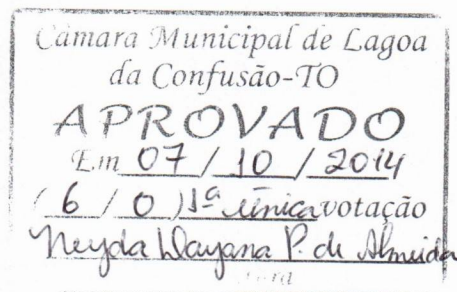 Câmara Municipal de Lagoa
da Confusão-TO
APROVADO
Em 07 / 10 / 2014
( 6 / 0 ) 1ª única votação
Neyda Dayana P. de Almeida